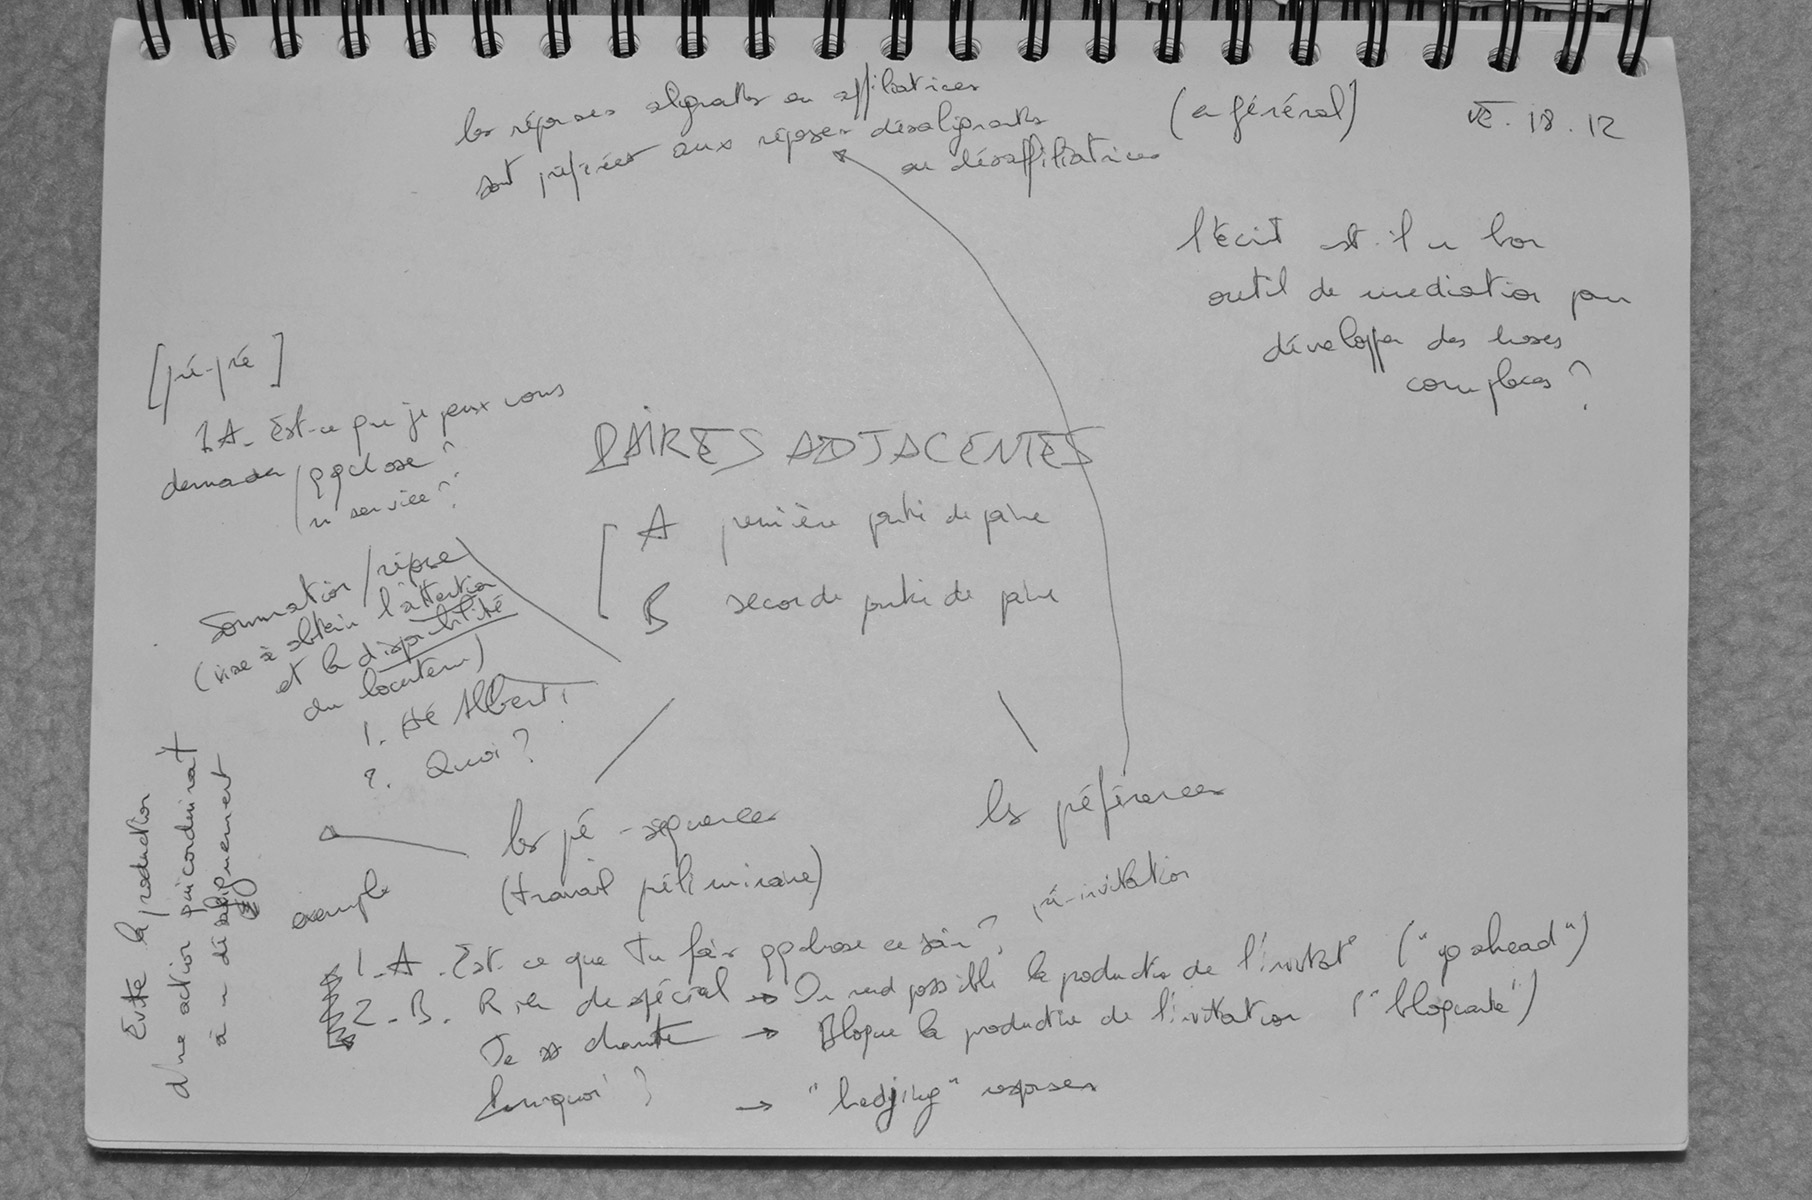 les réponses alignantes ou affiliatrices
sont préférées aux réponses désalignantes
ou désaffiliatrices
(en général)
VE. 18.12
l'écrit est-il un bon
outil de mediation pour
développer des choses
complexes ?
[pré-pré]
1A- Est-ce que je peux vous
demander / qqchose ?
/ un service ?
PAIRES ADJACENTES
A première partie de paire
B seconde partie de paire
Sommation / réponse
(vise à obtenir l'attention
et la disponibilité
du locuteur)
1. Hé Albert !
2. Quoi ?
les pré-séquences
(travail préliminaire)
les préférences
Evite la production
d'une action qui conduirait
à un désalignement
exemple
pré-invitation
1-A. Est-ce que Tu fais qqchose ce soir ?
2-B. Rien de spécial → On rend possible la production de l'invitat° ("go ahead")
Je chante → Bloque la production de l'invitation ("bloquante")
Pourquoi ? → "hedging" responses